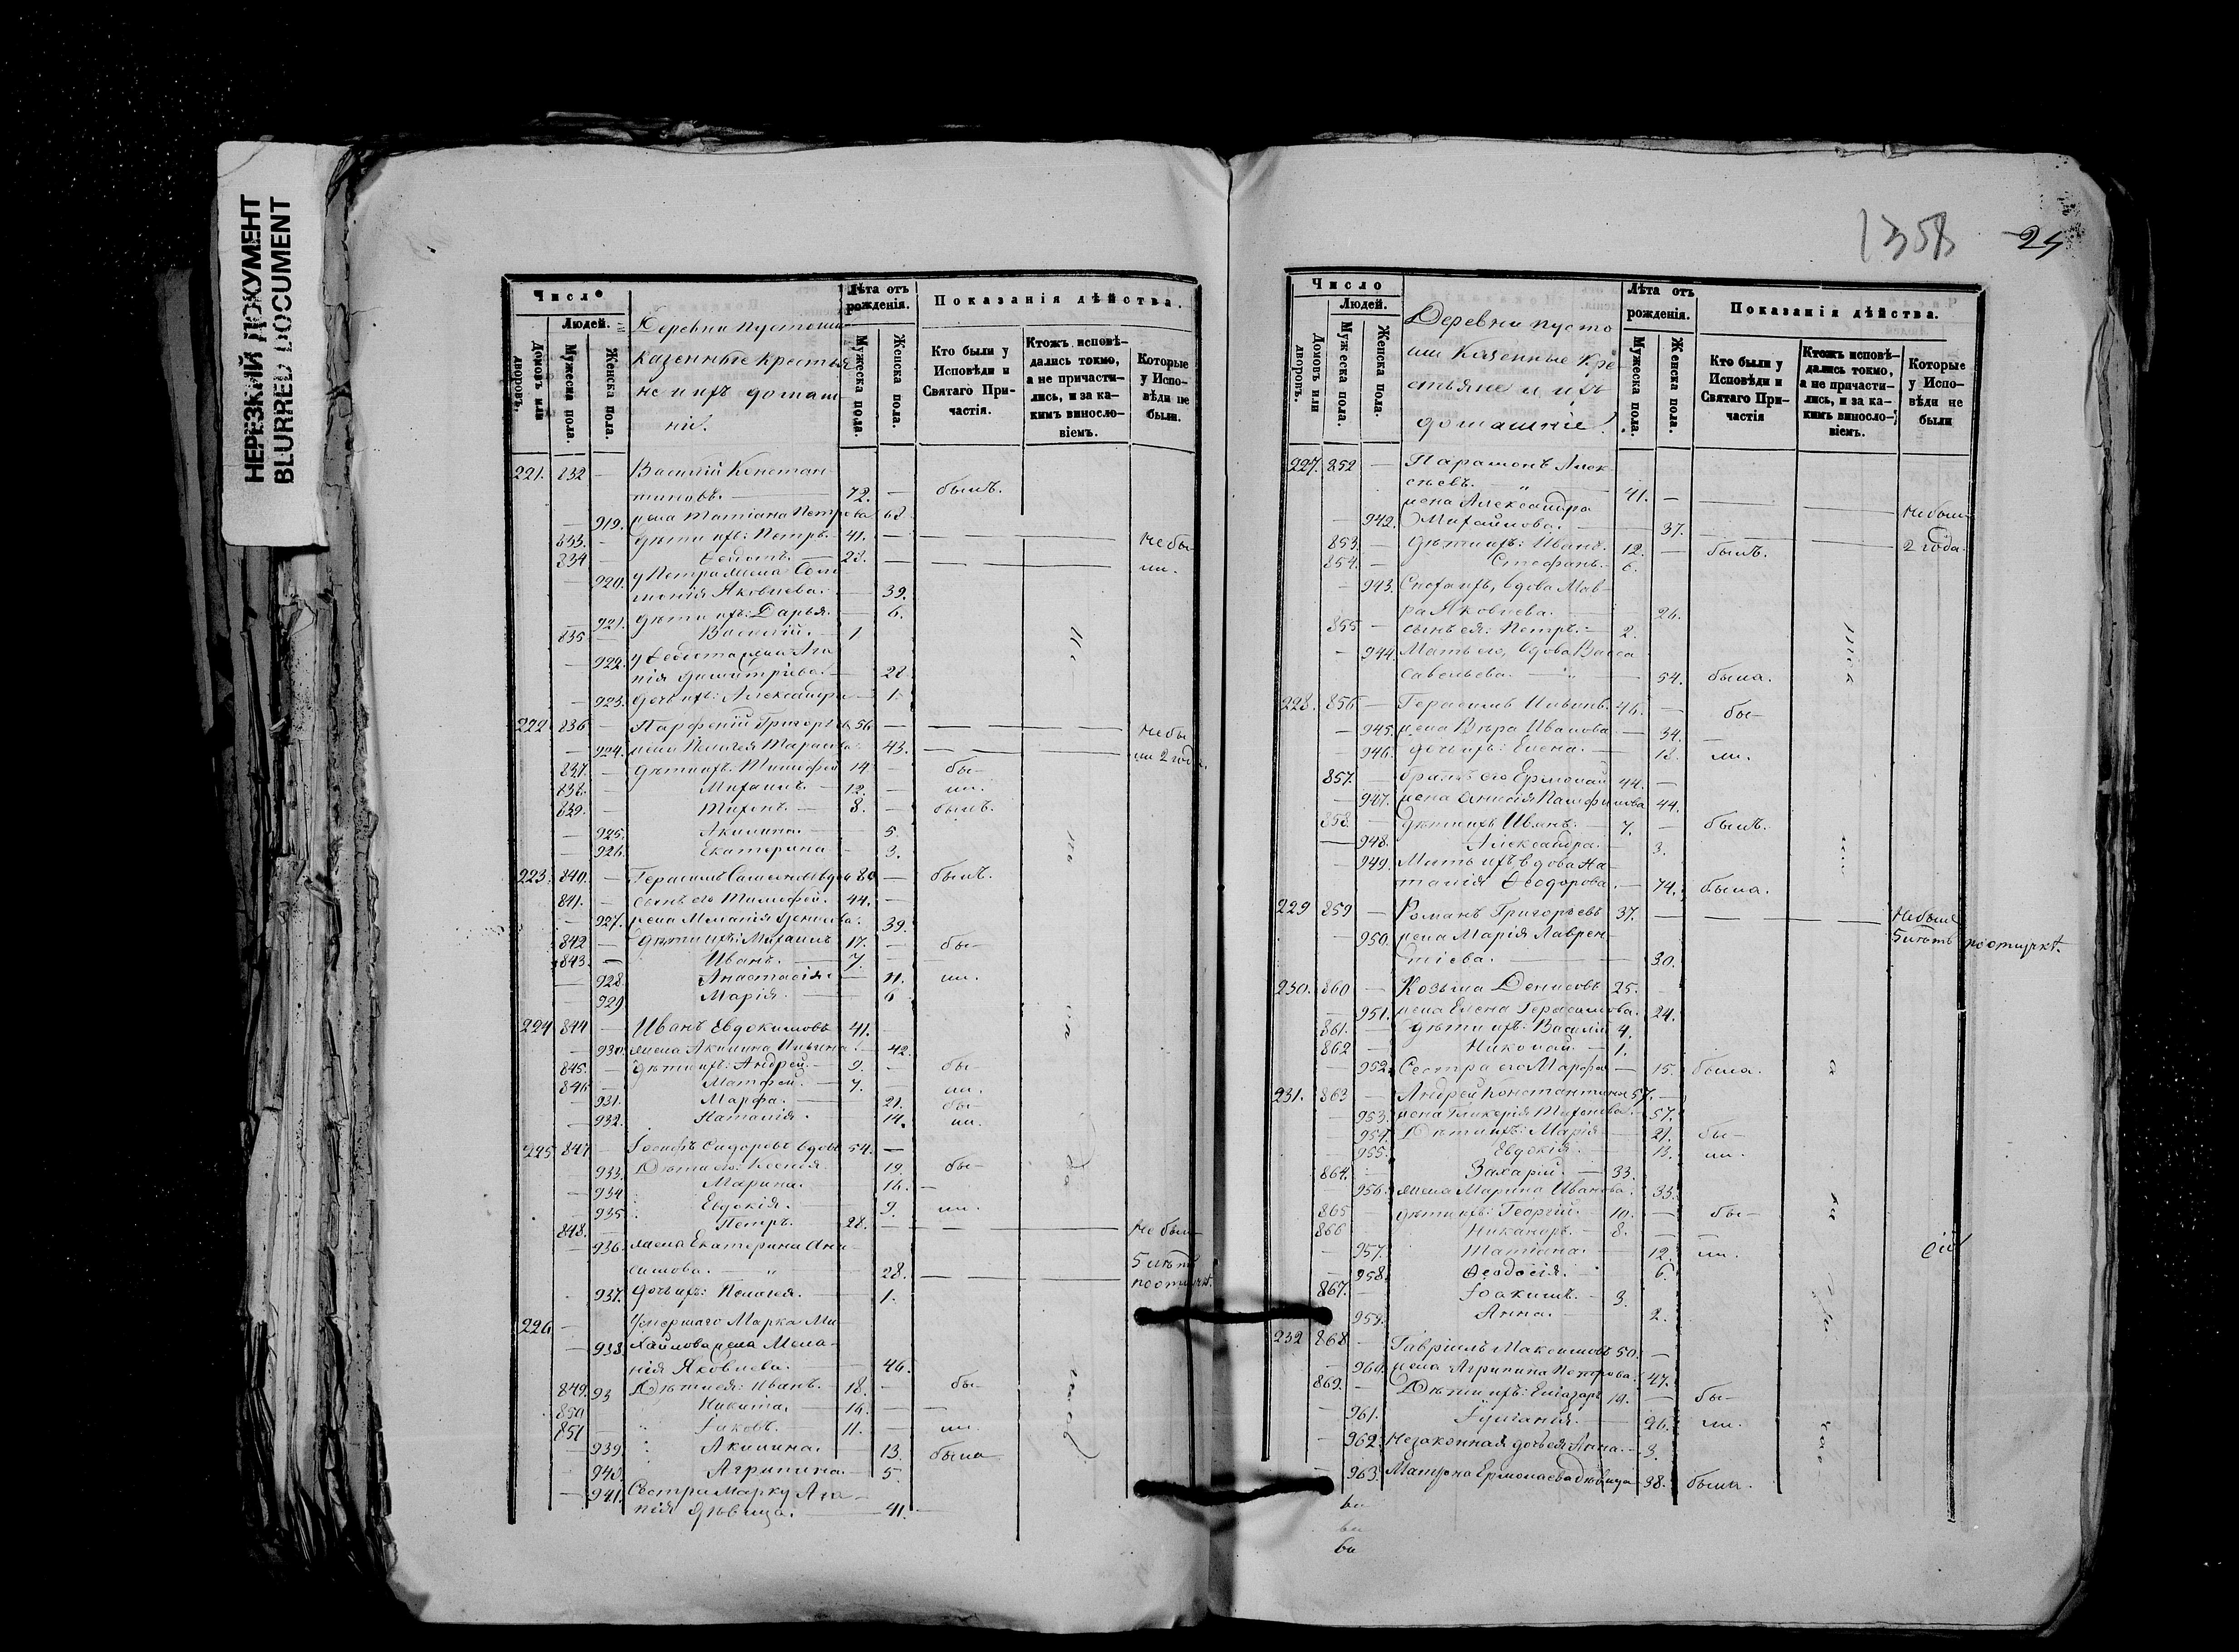 НЕРЕЗКИЙ ДОКУМЕНТ
BLURRED DOCUMENT
Число
Людей.
Домовъ или дворовъ.
Мужеска пола.
Женска пола.
Деревни Пустоши
казенные крестья
не и ихъ домаш
ніе.
Лѣта отъ рожденія.
Мужеска пола.
Женска пола.
Показанія дѣйства.
Кто были у Исповѣди и Святаго Причастія.
Ктожъ исповѣдались токмо, а не причастились, и за какимъ винословіемъ.
Которые у Исповѣди не были.
221. 832 — Василій Констан
тиновъ. — 72. — былъ.
— 919. жена Татіана Петрова 62
833. — дѣти ихъ: Петръ. — 41. — Не бы
834 Ѳедотъ. — 22. — ли.
— 920. у Петра жена Соло
монія Яковлева. — 39.
— 921. дѣти ихъ: Дарья. — 6.
835 — Василій. — 1
— 922. у Ѳедота жена Ага
пія Димитріева. — 22
— 923. дочь ихъ: Александра — 1.
222. 836 — Парфеній Григорьев 56. — Не бы
— 924. жена Пелагея Тарасова. 43. — ли 2 года.
837. — дѣти ихъ: Тимофей 14 — бы-
838. — Михаилъ. — 12. — ли.
839. — Тихонъ. — 8. — былъ.
— 925. Акилина. — 5.
— 926. Екатерина — 3.
223. 840. — Герасимъ Самсоновъ вдов 80 — былъ.
841. — сынъ его Тимофей. 44. —
— 927. жена Меланія Денисова. 39.
842 — дѣти ихъ: Михаилъ 17. — бы-
843. — Иванъ. — 7. —
— 928. Анастасія. — 11. ли.
— 929 Марія. — 6
224 844 — Иванъ Евдокимовъ 41. —
— 930. жена Акилина Ильина. — 42.
845. — дѣти ихъ: Андрей. — 9. — бы-
846 — Матфей. — 7. — ли.
— 931. Марфа. — 21. бы-
— 932. Наталія. — 14. ли.
225 847 — Іосифъ Сидоровъ вдовъ 54. —
— 933. Дѣти его: Ксенія. 19. бы-
— 934 Марина. — 16. —
— 935. Евдокія. — 9. ли.
848. — Петръ. 28. — Не были
— 936. жена Екатерина Они
симова. — 28. — 5 лѣтъ
— 937. дочь ихъ: Пелагея. — 1. по отлучк.
226 — Умершаго Марка Ми
— 938. хайлова жена Мела-
нія Яковлева. — 46.
849. 93 Дѣти ея: Иванъ. — 18. — бы-
850 Никита. — 14. —
851 Іаковъ. — 11. — ли.
— 939 Акилина. — 13. была
— 940. Агрипина. — 5.
— 941. Сестра Марку Ага-
пія дѣвица. — 41. —
1358
25
Число
Людей.
Домовъ или дворовъ.
Мужеска пола.
Женска пола.
Деревни Пусто
ши казенные кре
стьяне и ихъ
домашніе.
Лѣта отъ рожденія.
Мужеска пола.
Женска пола.
Показанія дѣйства.
Кто были у Исповѣди и Святаго Причастія
Ктожъ исповѣдались токмо, а не причастились, и за какимъ винословіемъ.
Которые у Исповѣди не были
227. 852 — Парамонъ Алек-
сѣевъ. — 41. —
жена Александра Не были
— 942. Михайлова. — 37.
853. — дѣти ихъ: Иванъ. 12. — былъ. 2 года.
854. — Стефанъ. 6.
— 943. Сноха ихъ, вдова Мав-
ра Яковлева. — 26.
855 — сынъ ея: Петръ. — 2.
— 944. Мать его, вдова Васса
Савельева. — 54. была.
228. 856 — Герасимъ Ивановъ. 46. — бы-
— 945. жена Вѣра Иванова. — 34. —
946. дочь ихъ: Елена. — 18. ли.
857. — братъ его Ермолай 44. —
— 947. жена Анисія Панфилова 44.
858. — дѣти ихъ Иванъ. — 7. — былъ.
— 948. Александра. 3.
— 949. Мать ихъ, вдова На-
талія Ѳеодорова. — 74. была.
229 859 — Романъ Григорьевъ 37. — Не были
— 950. жена Марія Лаврен- 5 лѣтъ по отлучк.
тіева. — 30.
230. 860 — Козьма Денисовъ 25. —
— 951. жена Елена Герасимова. 24.
861. — дѣти ихъ: Василій 4.
862 — Николай. — 1.
— 952. Сестра его Марфа — 15. была.
231. 863 — Андрей Константинов 57. —
— 953. жена Гликерія Тихонова. — 57.
— 954. Дѣти ихъ: Марія 21. бы-
— 955. Евдокія. 13. ли.
864. — Захарій. — 33.
— 956. жена Марина Иванова. 33.
865 — дѣти ихъ: Георгій. — 10. — бы-
866 — Никаноръ. — 8. —
— 957. Татіана. — 12. ли.
— 958. Ѳеодосія. 6.
867. — Іоакимъ. — 3.
959. Анна. — 2.
232 868 — Гавріилъ Максимовъ 50. —
— 960. жена Агрипина Петрова. 47.
869. — Дѣти ихъ: Елиазаръ 19. — бы-
— 961. Іуліанія. — 26. ли.
— 962. Незаконная дочь ея Анна. — 3.
— 963. Матрона Ермолаева дѣвица 38. была.